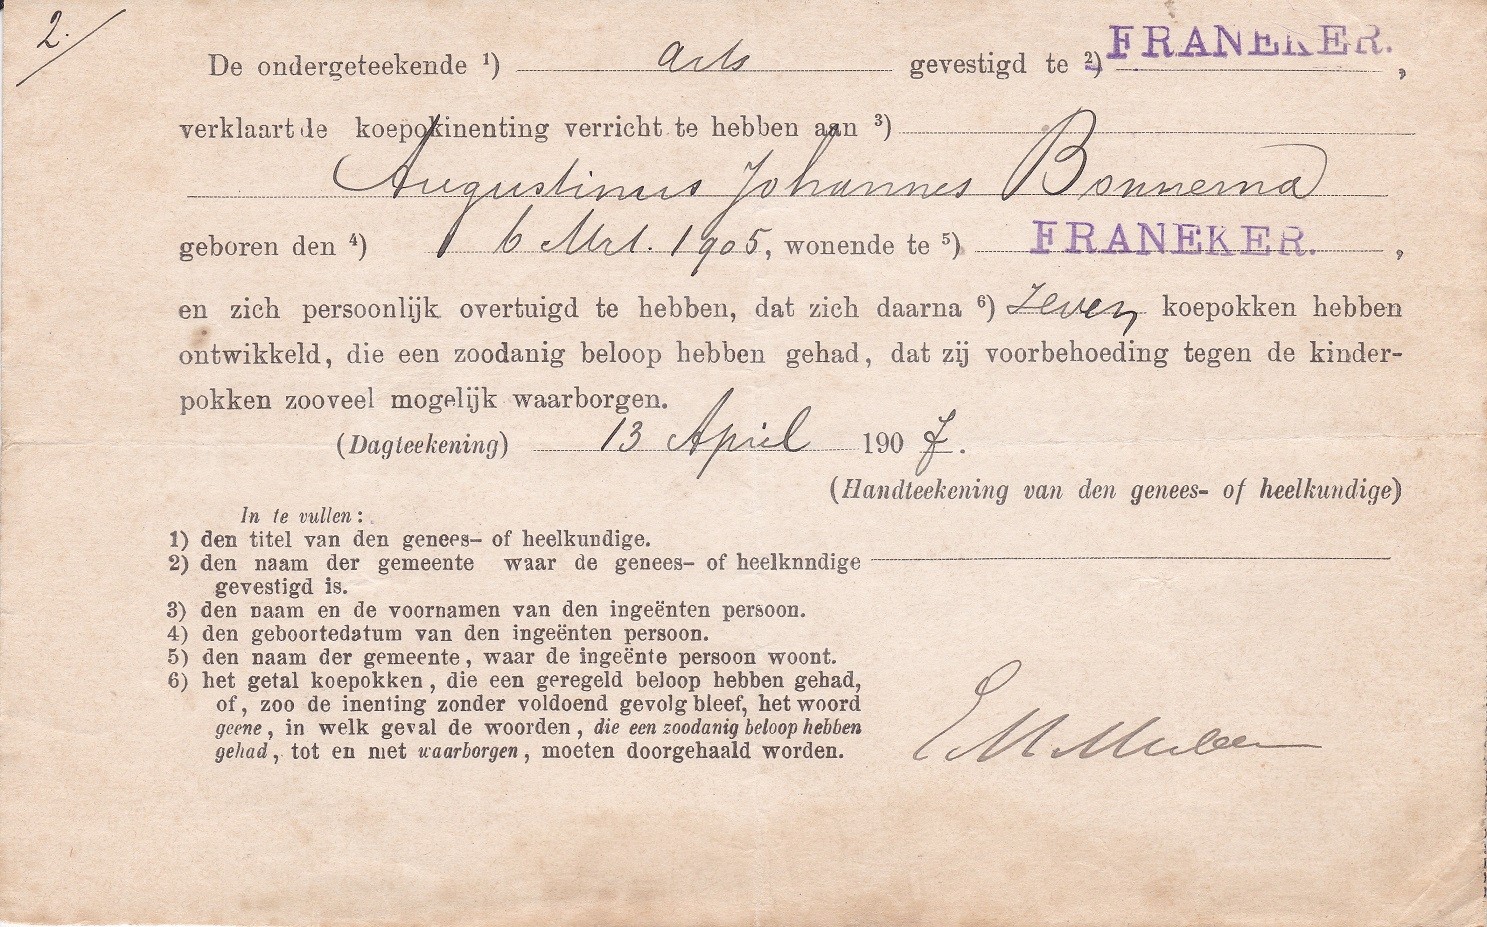 2.
De ondergeteekende ¹) arts gevestigd te ²) FRANEKER.,
verklaart de koepokinenting verricht te hebben aan ³)
Augustinus Johannes Bonnema
geboren den ⁴) 6 Mrt. 1905, wonende te ⁵) FRANEKER.,
en zich persoonlijk overtuigd te hebben, dat zich daarna ⁶) zeven koepokken hebben
ontwikkeld, die een zoodanig beloop hebben gehad, dat zij voorbehoeding tegen de kinder-
pokken zooveel mogelijk waarborgen.
(Dagteekening) 13 April 1907.
(Handteekening van den genees- of heelkundige)
In te vullen:
1) den titel van den genees- of heelkundige.
2) den naam der gemeente waar de genees- of heelknndige
gevestigd is.
3) den naam en de voornamen van den ingeënten persoon.
4) den geboortedatum van den ingeënten persoon.
5) den naam der gemeente, waar de ingeënte persoon woont.
6) het getal koepokken, die een geregeld beloop hebben gehad,
of, zoo de inenting zonder voldoend gevolg bleef, het woord
geene, in welk geval de woorden, die een zoodanig beloop hebben
gehad, tot en met waarborgen, moeten doorgehaald worden.